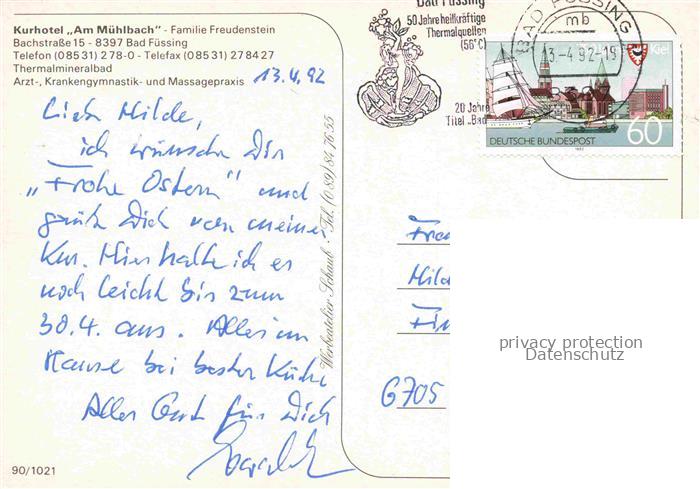 Kurhotel „Am Mühlbach" - Familie Freudenstein
Bachstraße 15 - 8397 Bad Füssing
Telefon (085 31) 278-0 - Telefax (085 31) 27 84 27
Thermalmineralbad
Arzt-, Krankengymnastik- und Massagepraxis
13.4.92
Liebe Hilde,
ich wünsche Dir
„Frohe Ostern" und
grüße Dich von meiner
Kur. Hier halte ich es
noch leicht bis zum
30.4. aus. Alles im
Hause bei bester Küche
Alles Gute für Dich
90/1021
Werbeatelier Schaub · Tel. (0 89) 84 76 55
Bad Füssing
50 Jahre heilkräftige
Thermalquellen
(56°C)
20 Jahre
Titel „Bad
BAD FÜSSING
mb
13.-4.92-19
Kiel
60
DEUTSCHE BUNDESPOST
1992
Frau
Hild
6705
privacy protection
Datenschutz